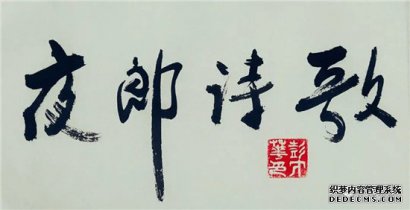 夜郎诗歌
织梦内容管理系统
DEDECMS.COM